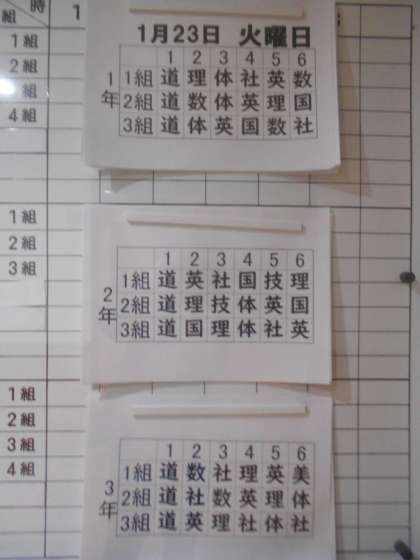 時
組 1
1組
2組
3組
4組
1組
2組
3組
1組
2組
3組
4組
1月23日 火曜日
1 2 3 4 5 6
1年
1組 道 理 体 社 英 数
2組 道 数 体 英 理 国
3組 道 体 英 国 数 社
1 2 3 4 5 6
2年
1組 道 英 社 国 技 理
2組 道 理 技 体 英 国
3組 道 国 理 体 社 英
1 2 3 4 5 6
3年
1組 道 数 社 理 英 美
2組 道 社 数 英 理 体
3組 道 英 理 社 体 社